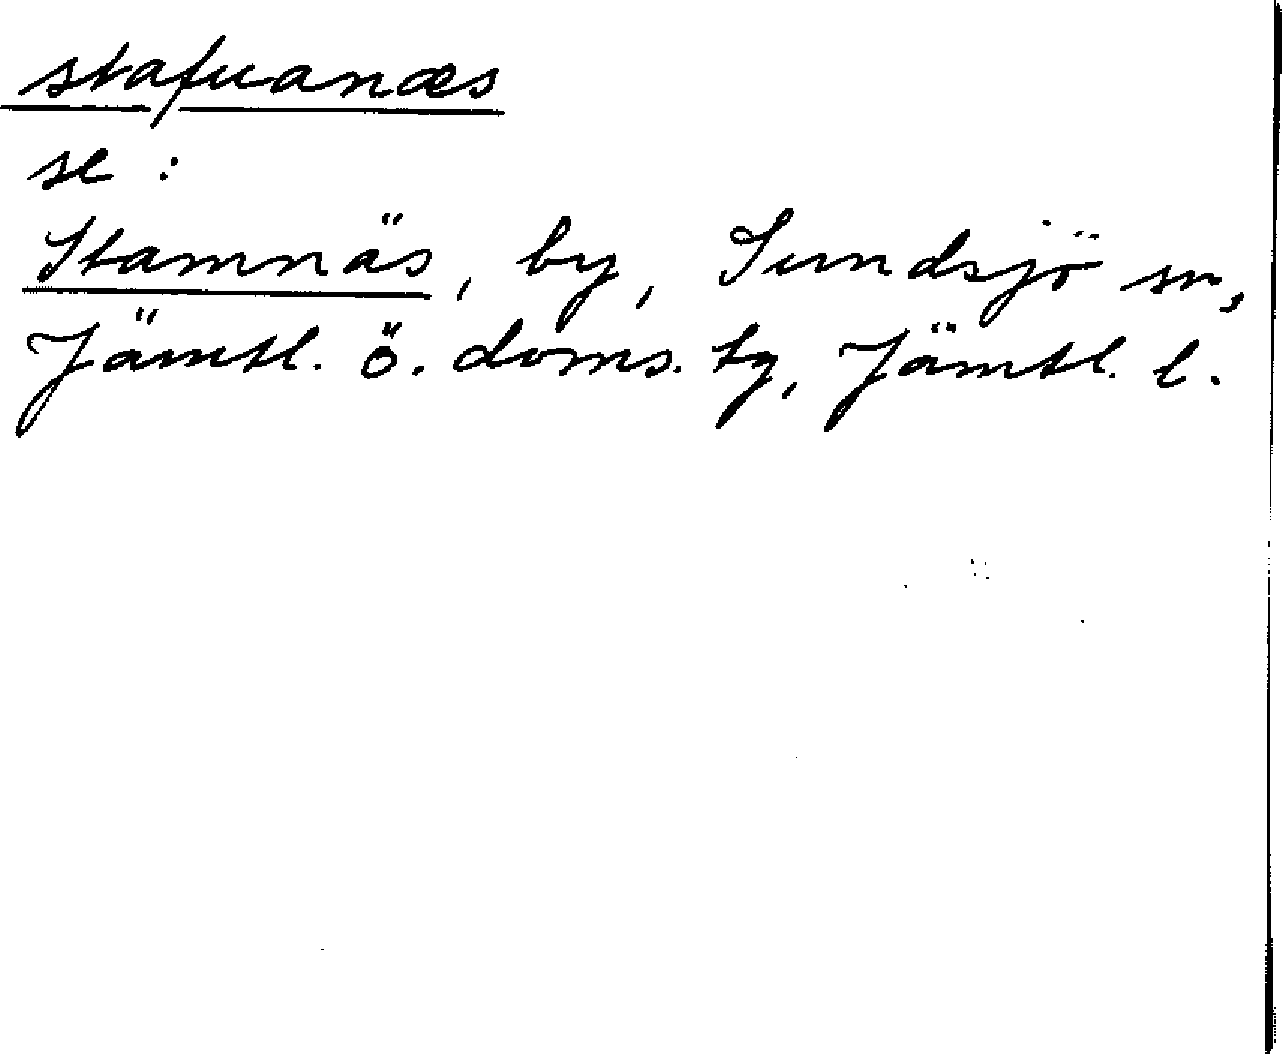 stafuanæs
se :
Stamnäs, by, Sundsjö sn,
Jämtl. ö. doms. tg, Jämtl. l.